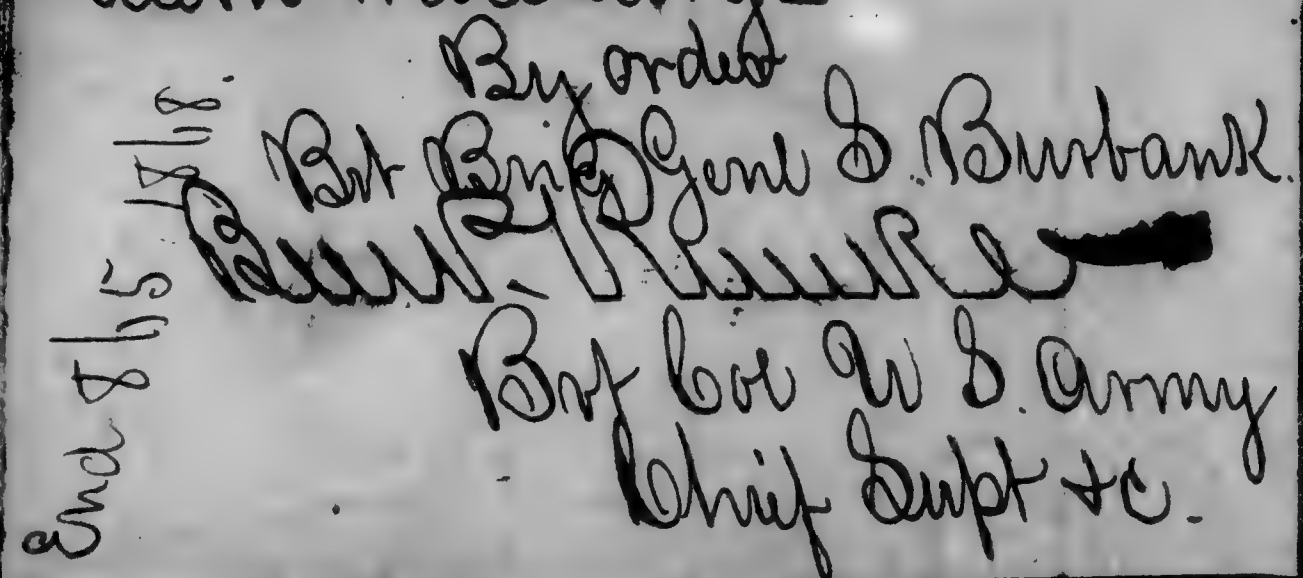 By order
Bvt Brig Genl S. Burbank.
Ben P. Runkle
Bvt Col U S. Army
Chief Supt &c.
End 865 1868.